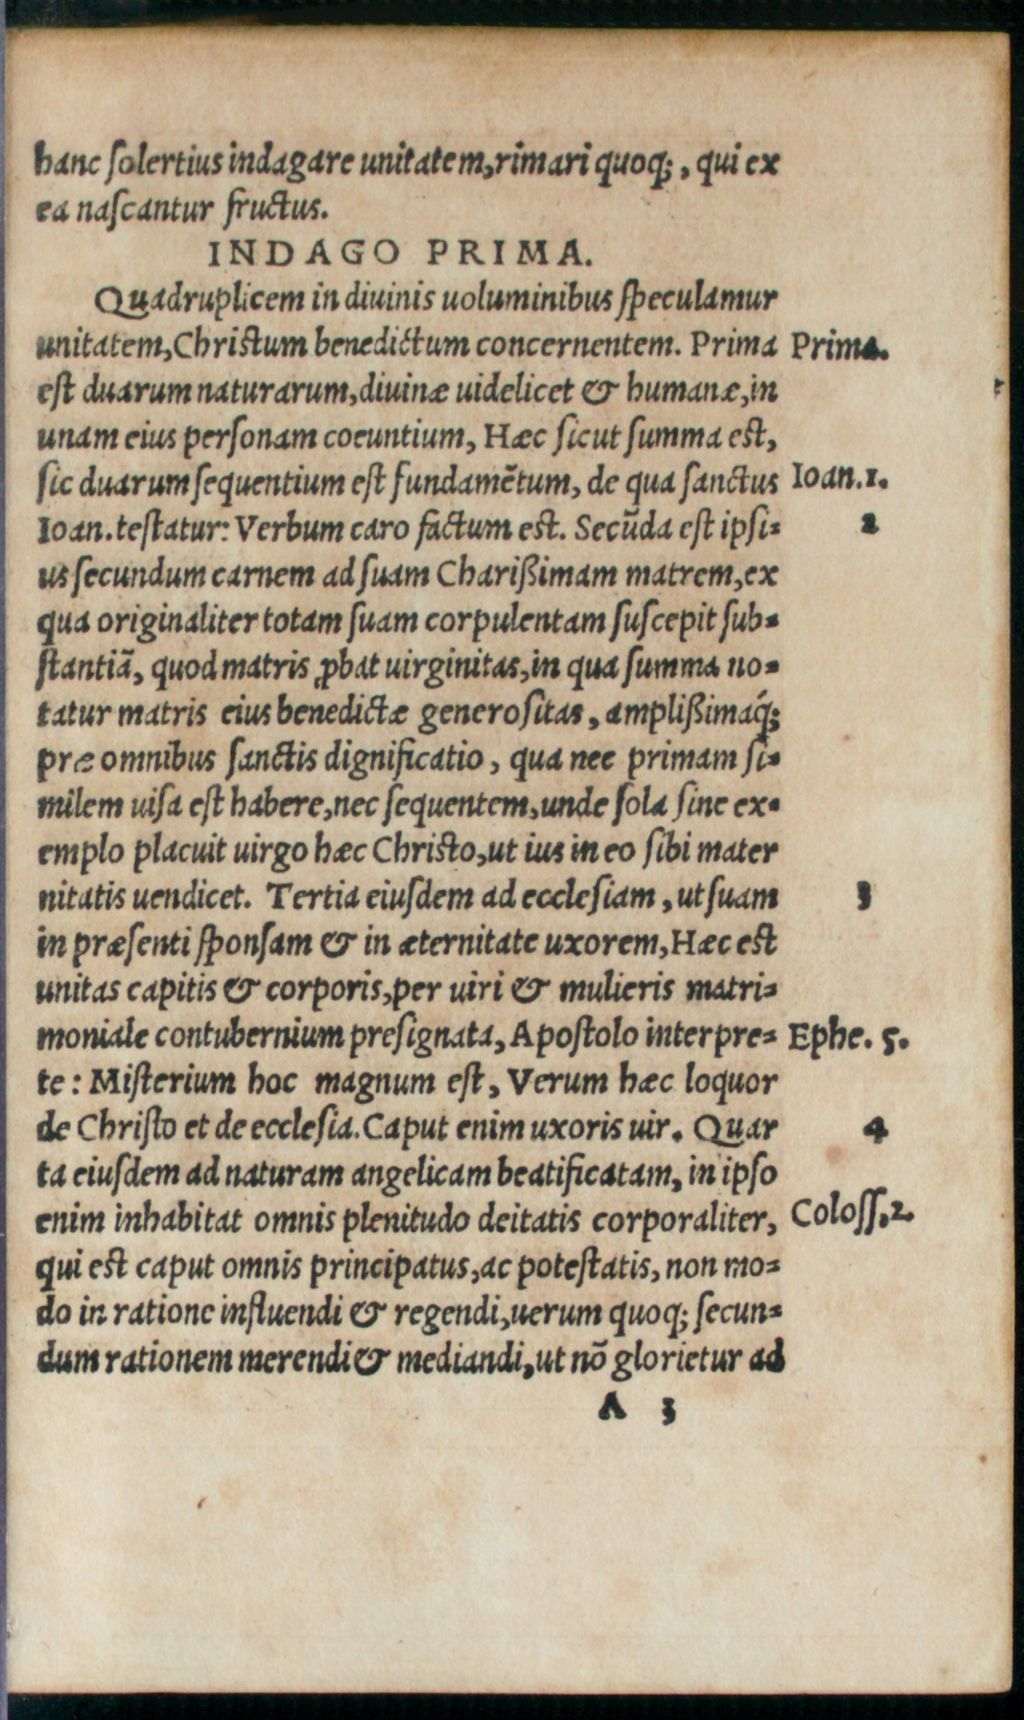 hanc ſolertius indagare unitatem, rimari quoq;, qui ex
ea naſcantur fructus.
INDAGO PRIMA.
Quadruplicem in diuinis uoluminibus ſpeculamur
unitatem, Chriſtum benedictum concernentem. Prima Prima.
eſt duarum naturarum, diuinæ uidelicet & humanæ, in
unam eius perſonam coeuntium, Hæc ſicut ſumma eſt,
ſic duarum ſequentium eſt fundamẽtum, de qua ſanctus Ioan.1.
Ioan. teſtatur: Verbum caro factum eſt. Secũda eſt ipſi= 2
us ſecundum carnem ad ſuam Charißimam matrem, ex
qua originaliter totam ſuam corpulentam ſuſcepit ſub=
ſtantiã, quod matris ꝓbat uirginitas, in qua ſumma no=
tatur matris eius benedictæ generoſitas, amplißimaq́;
præ omnibus ſanctis dignificatio, qua nec primam ſi=
milem uiſa eſt habere, nec ſequentem, unde ſola ſine ex=
emplo placuit uirgo hæc Chriſto, ut ius in eo ſibi mater
nitatis uendicet. Tertia eiuſdem ad eccleſiam, ut ſuam 3
in præſenti ſponſam & in æternitate uxorem, Hæc eſt
unitas capitis & corporis, per uiri & mulieris matri=
moniale contubernium preſignata, Apoſtolo interpre= Ephe. 5.
te: Miſterium hoc magnum eſt, Verum hæc loquor
de Chriſto et de eccleſia. Caput enim uxoris uir. Quar 4
ta eiuſdem ad naturam angelicam beatificatam, in ipſo
enim inhabitat omnis plenitudo deitatis corporaliter, Coloſſ.2.
qui eſt caput omnis principatus, ac poteſtatis, non mo=
do in ratione influendi & regendi, uerum quoq; ſecun=
dum rationem merendi & mediandi, ut nõ glorietur ad
A 3